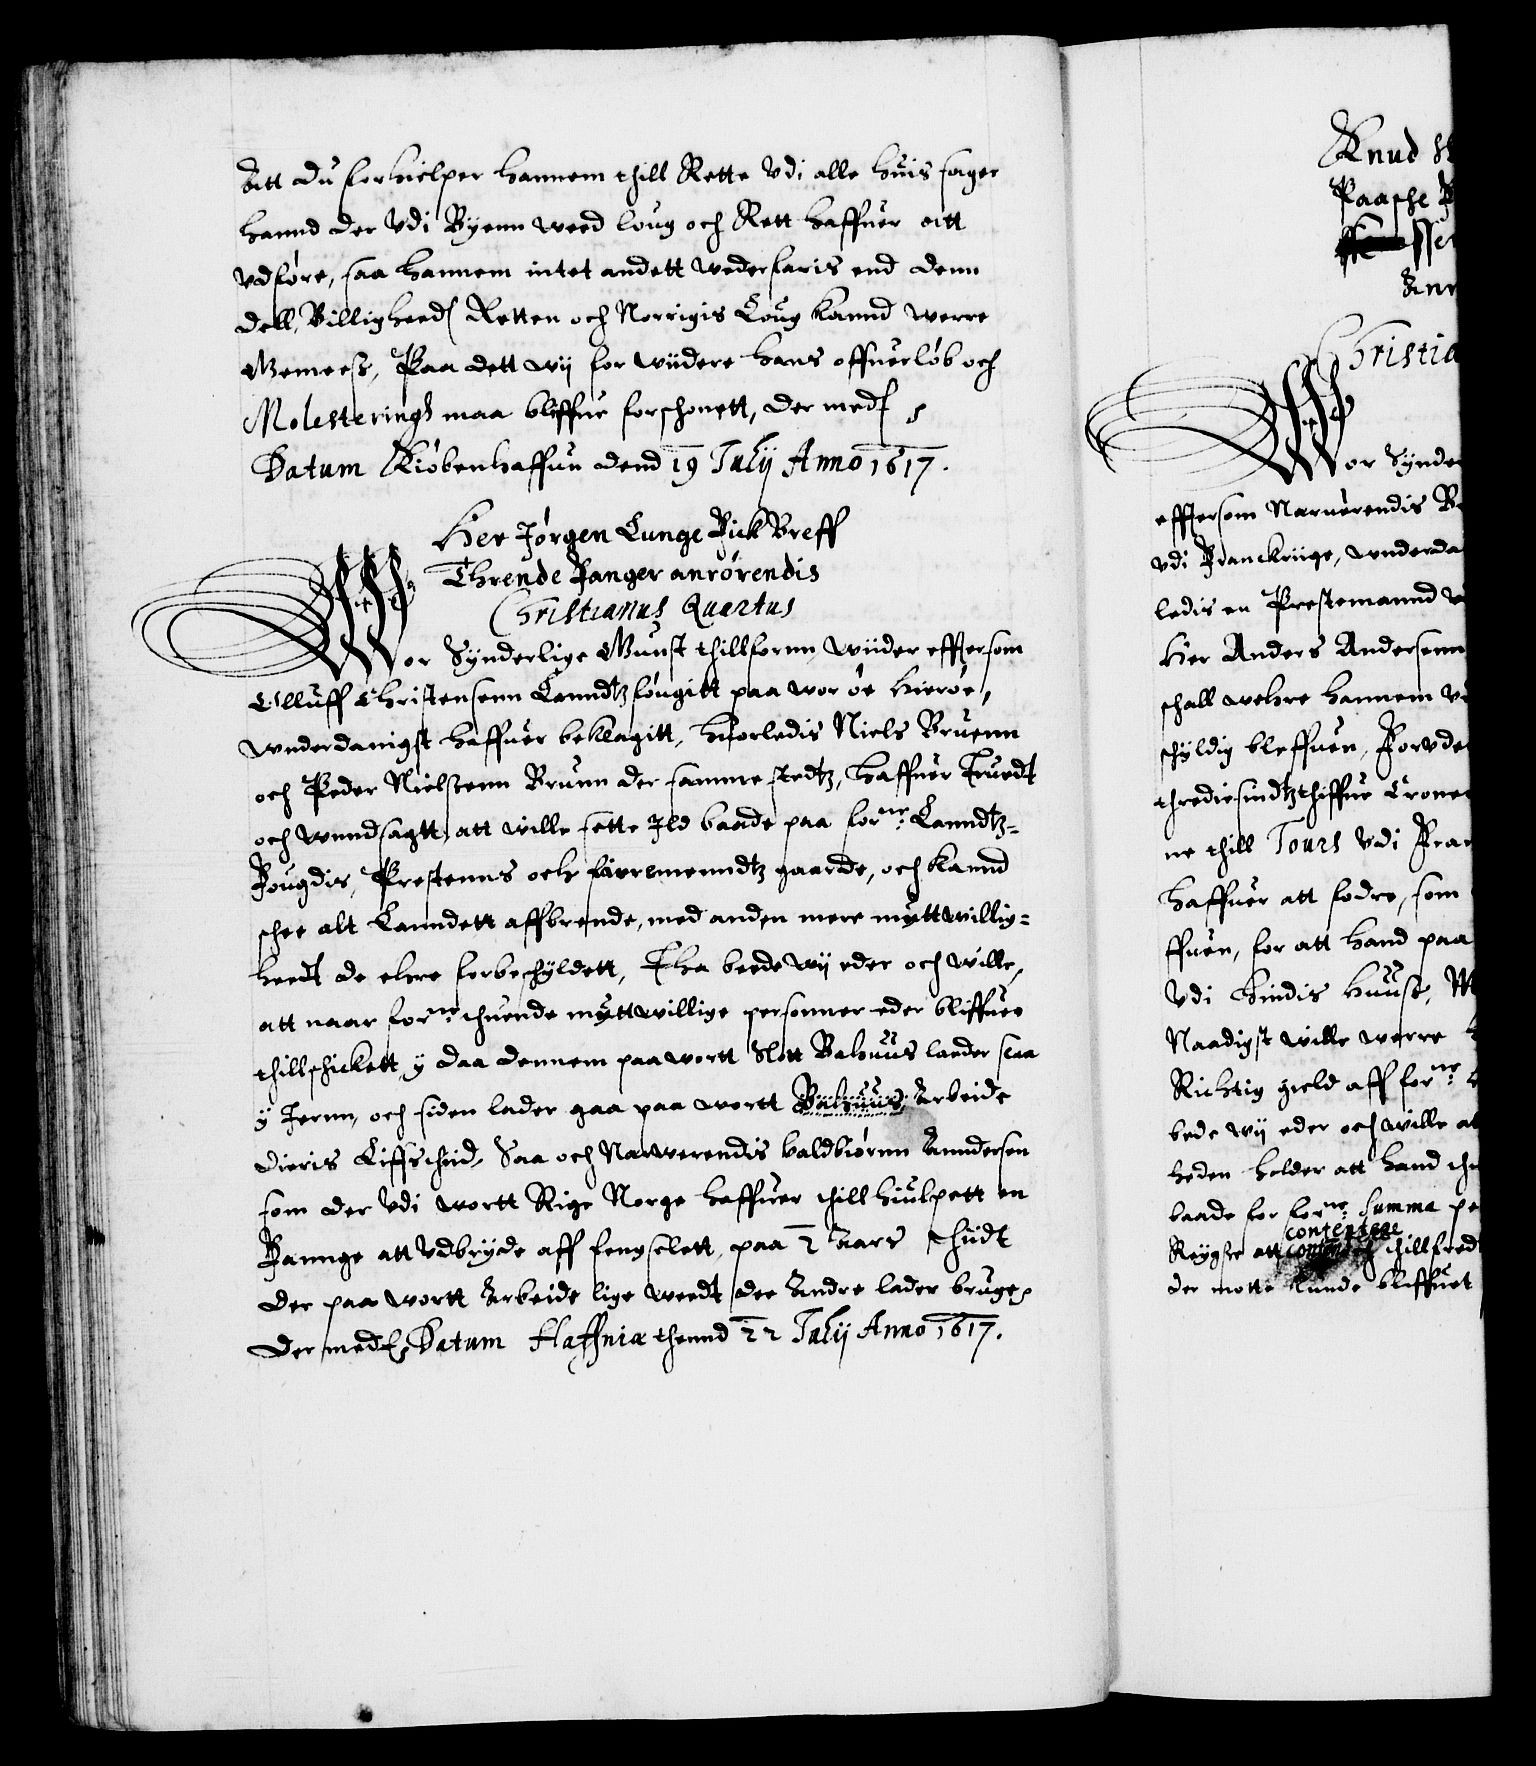 Att du forhielper hannem thill Rette Vdi alle huis sager
hannd der Vdi Byenn weed loug och Rett haffuer att
vdføre, saa hannem intet andett wederfaris end denn
dell, Billigheed Retten och Norrigis Loug kannd werre
Gemeess, Paa dett wij for wiidere hans offuerløb och
Molestering maa bliffue forschonett, der med
Datum Kiøbenhaffun dend 19 Julij Anno 1617.
Her Jørgen Lunge Fick Breff
Thrende Fanger anrørendis
Christianus Quartus
Wor Synderlige Gunst thillfornn, wiider efftersom
Olluff Christensenn Lanndtzfougitt paa wor øe hierøe,
wnderdanigst haffuer beklagitt, huorledis Niels Bruenn
och Peder Nielssenn Bruun der sammestedtz, haffuer Truedt
och wundsagtt, att wille sette Ild baade paa forne: Lanndtz-
Fougdis, Prestenns och flere menndtz gaarde, och kannd
schee alt Lanndett affbrende, med anden mere muttwillig-
heedt de ehre forbeschyldett, Tha beede wij eder och wille,
att naar forne: thuende muttwillige personner eder bliffuer
thillschickett, y daa dennem paa wortt Slott Bahuus lader slaa
y Jernn, och siden lader gaa paa wortt Bahuus, Arbeide
dieris Liffs thid, Saa och Nerwerendis baldbiørnn Anndersen
som der Vdi wortt Rige Norge haffuer thill hiulpett en
Fannge att Vdbryde aff fengselett, paa 2 Aars thiidt
der paa wortt Arbeide lige weedt dee Andre lader bruge,
Der med Datum Haffniæ thennd 22 Julij Anno 1617.
Knud
Paaske
Christia
Wor Synde
efftersom Neruerendis
vdi Franckriige, wnderda
ledis en Prestemannd
Her Anders Andersenn
schall wehre hannem
schyldig bleffuen, Forvde
thrediesindtzthiffue Crone
ne thill Tours Vdi Fra
haffuer att fodre, som
ffuen, for att hand paa
Vdi hindis huuss,
Naadigst wille werre
Richtig gield aff forne:
bede wij eder och wille at
heden holder att hand
baade for forne: summa
contentere
Reygsse att thillfred
der motte kunde bliffuet